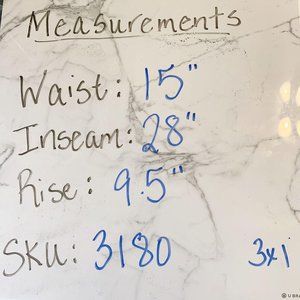 Measurements
Waist: 15"
Inseam: 28"
Rise: 9.5"
SKU: 3180 3x1